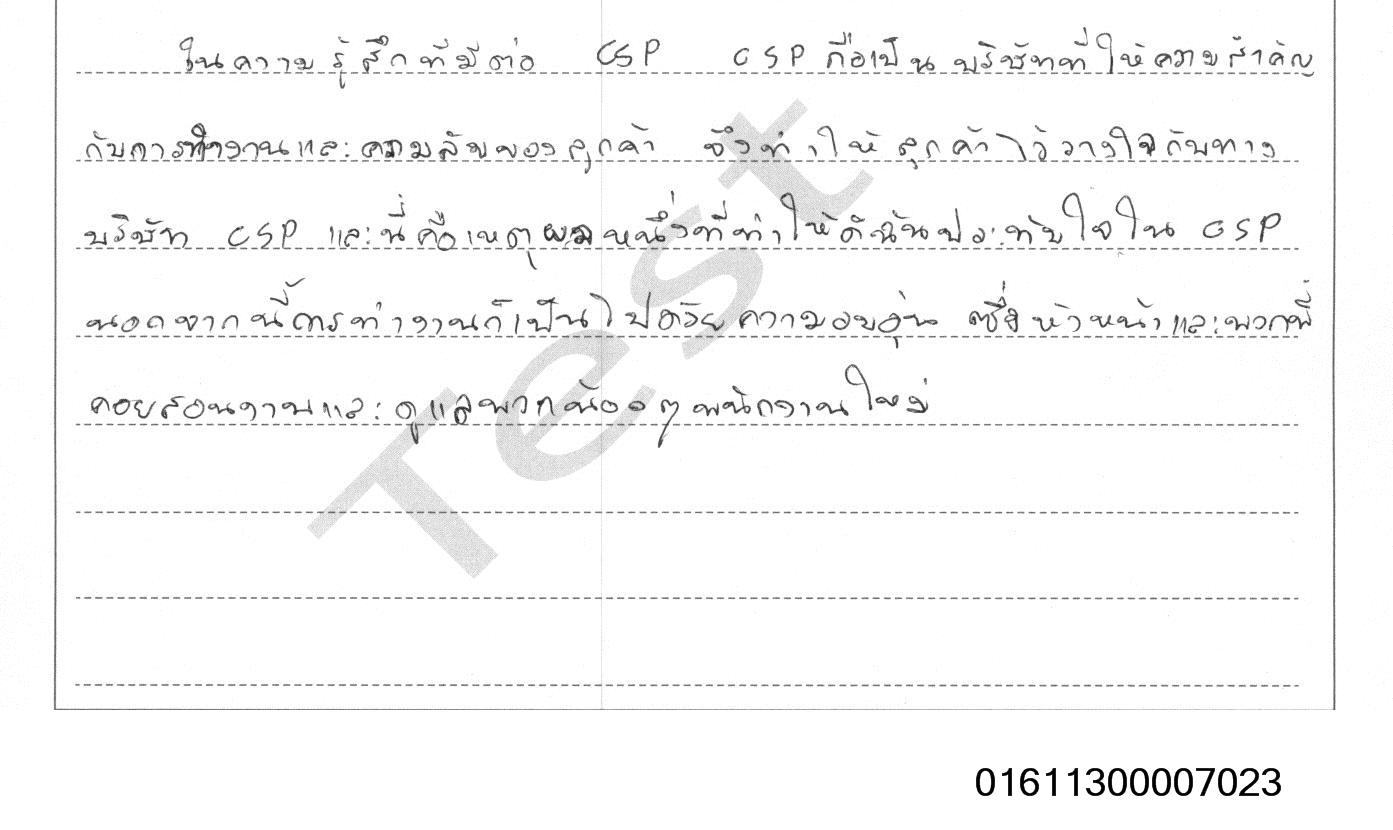 ในความรู้สึกที่มีต่อ CSP CSP ถือเป็นบริษัทที่ให้ความสำคัญ
กับการทำงานและความลับของลูกค้า จึงทำให้ลูกค้าไว้วางใจกับทาง
บริษัท CSP และนี่คือเหตุผลหนึ่งที่ทำให้ดิฉันประทับใจใน CSP
นอกจากนี้การทำงานก็เป็นไปด้วยความอบอุ่น ซึ่งหัวหน้าและพวกพี่
คอยสอนงานและดูแลพวกน้องๆพนักงานใหม่
Test
01611300007023